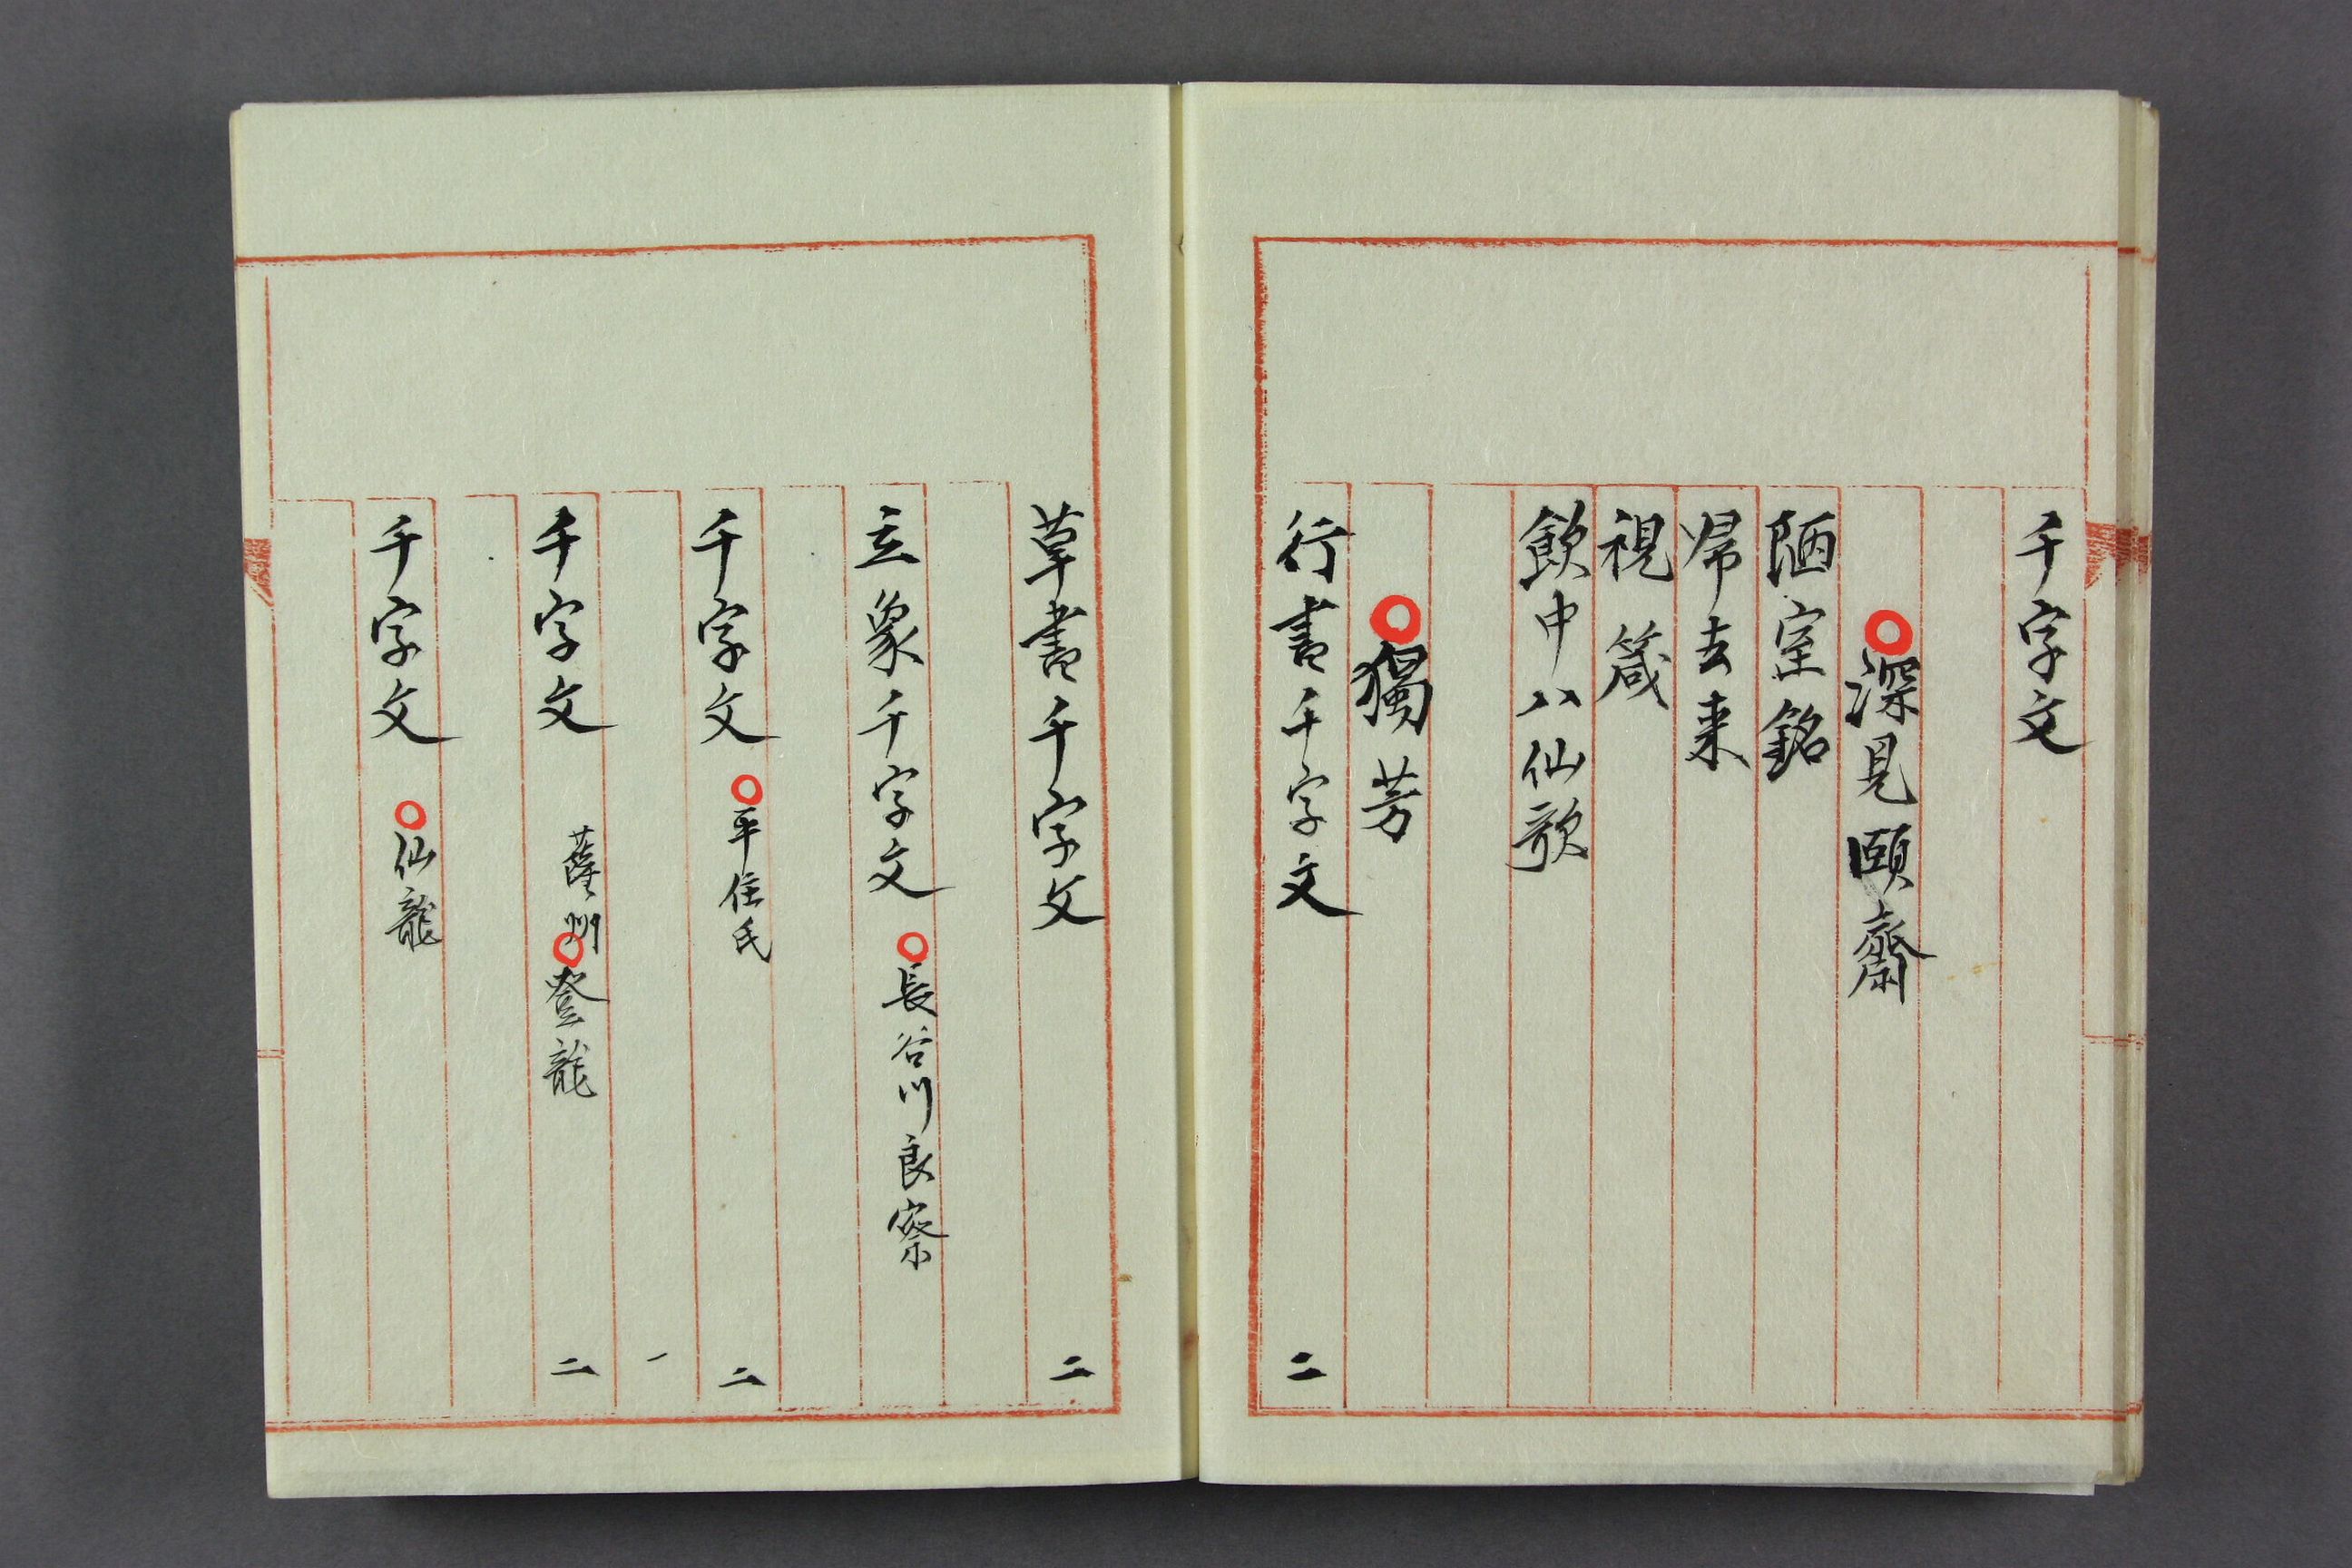 千字文
○深見頤齋
陋室銘
帰去来
視箴
飲中八仙歌
○獨芳
行書千字文 二
草書千字文 二
玄象千字文 ○長谷川良察
千字文 ○平住氏 二
千字文 薩州○登龍 二
千字文 ○仙龍